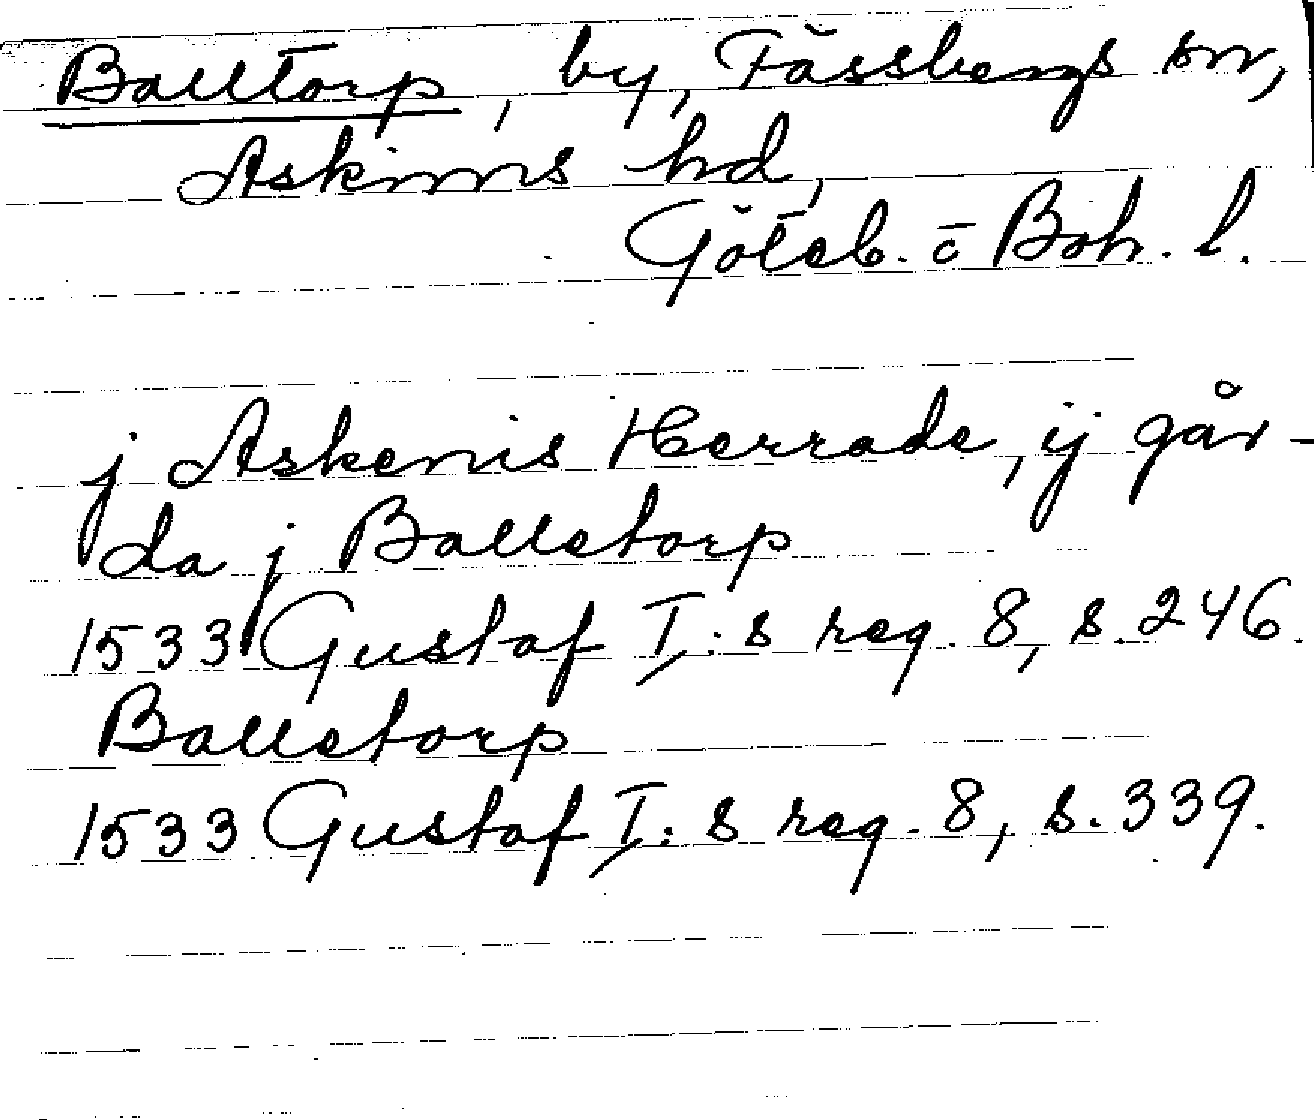 Balltorp, by, Fässbergs sn,
Askims hd,
Göteb. o Boh. l.
j Askemis Herrade, ij går-
da j Balletorp
1533 Gustaf I:s reg. 8, s. 246.
Balletorp
1533 Gustaf I:s reg. 8, s. 339.